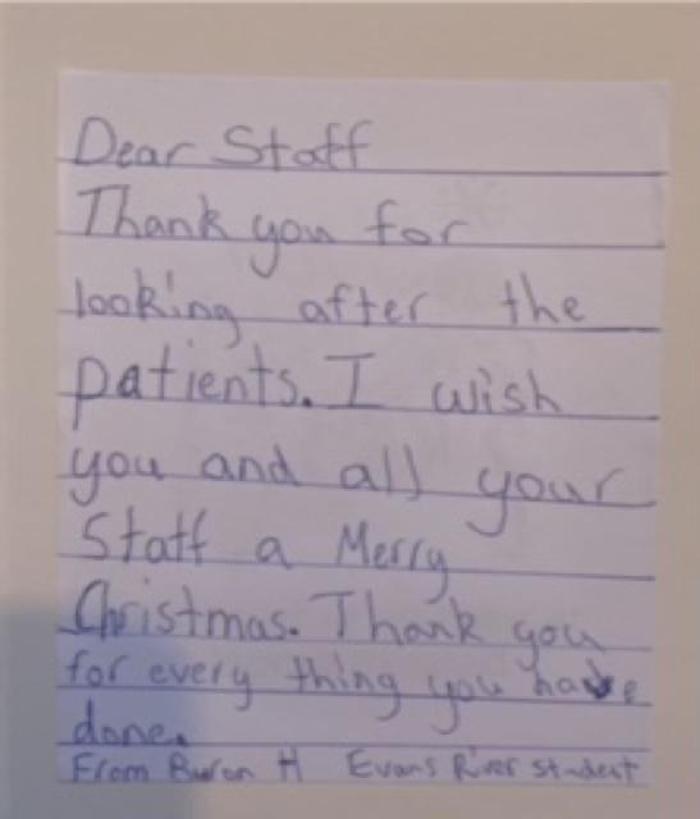 Dear Staff
Thank you for
looking after the
patients. I wish
you and all your
Staff a Merry
Christmas. Thank you
for every thing you have
done.
From H Evans River student